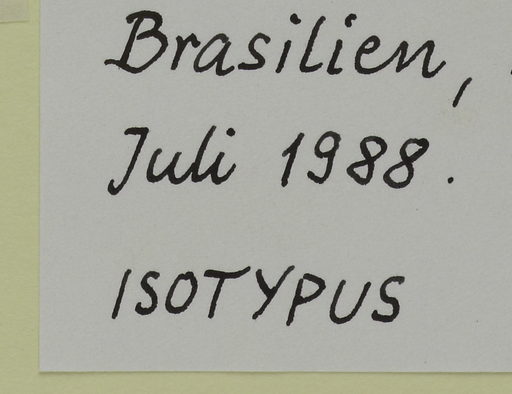 Brasilien,
Juli 1988.
ISOTYPUS